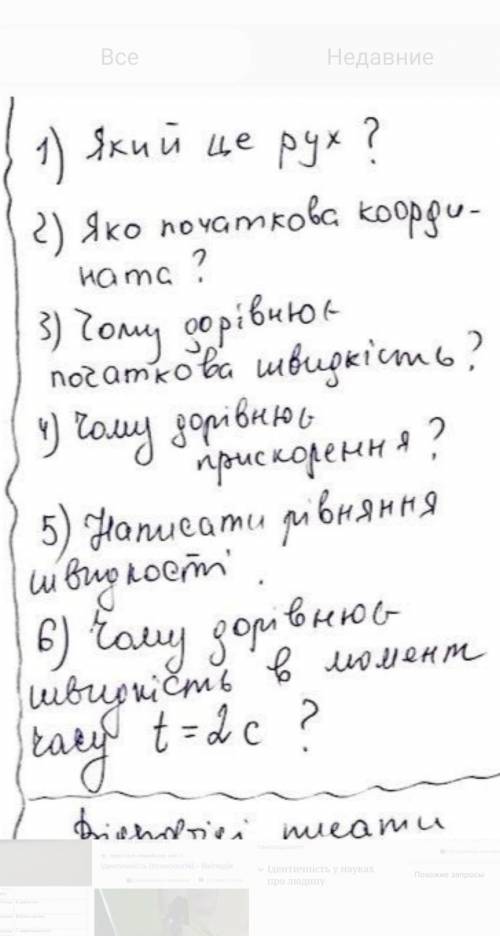 Все Недавние
1) Який це рух?
2) Яко початкова коорди-
ната?
3) Чому дорівнює
початкова швидкість?
4) Чому дорівнює
прискорення?
5) Написати рівняння
швидкості.
6) Чому дорівнює
швидкість в момент
часу t = 2 с ?
писати
Ідентичність у науках
про людину
Похожие запросы